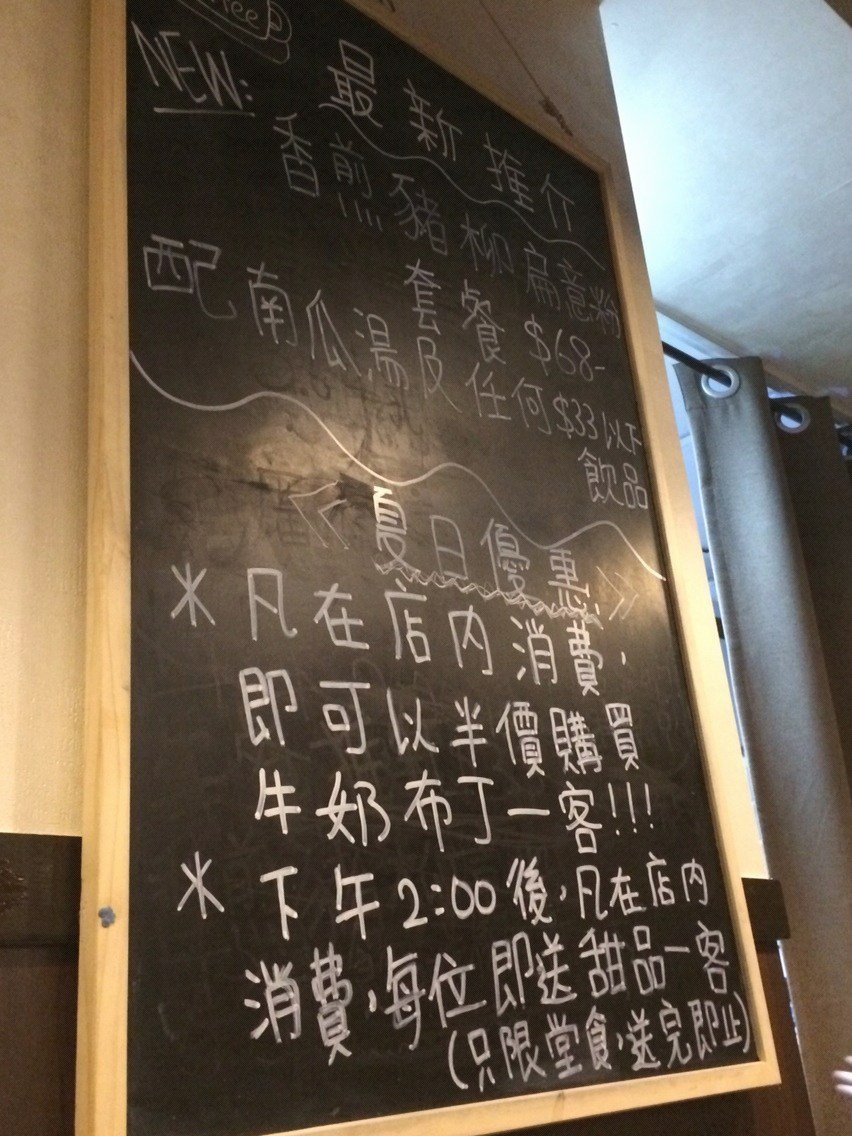 NEW: 最新推介
香煎豬柳扁意粉
套餐 $68-
配南瓜湯及任何$33以下
飲品
《夏日優惠》
* 凡在店內消費,
即可以半價購買
牛奶布丁一客!!!
* 下午2:00後,凡在店內
消費,每位即送甜品一客
(只限堂食,送完即止)